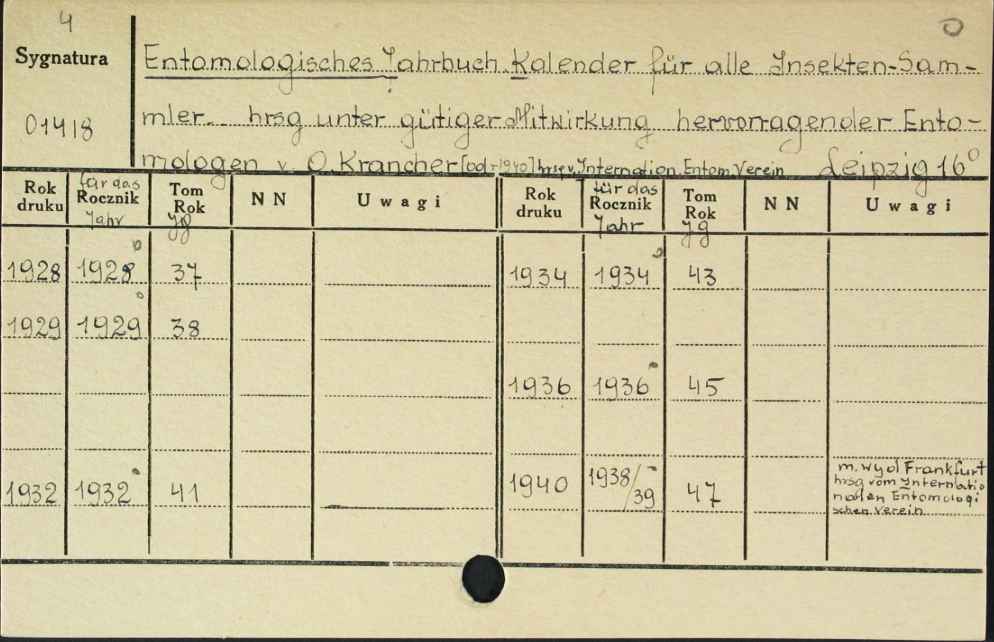 4
Sygnatura
01418
Entomologisches Jahrbuch. Kalender für alle Insekten-Sam-
mler. hrsg unter gütiger Mitwirkung hervorragender Ento-
mologen v. O. Krancher [od-1940] hrsg v. Internation. Entom. Verein Leipzig 16°
Rok druku für das Rocznik Jahr Tom Rok Jg NN Uwagi Rok druku für das Rocznik Jahr Tom Rok Jg NN Uwagi
1928 1928 37 1934 1934 43
1929 1929 38
1936 1936 45
1932 1932 41 1940 1938/39 47
m. wyd Frankfurt
hrsg vom Internatio
nalen Entomologi
schen Verein